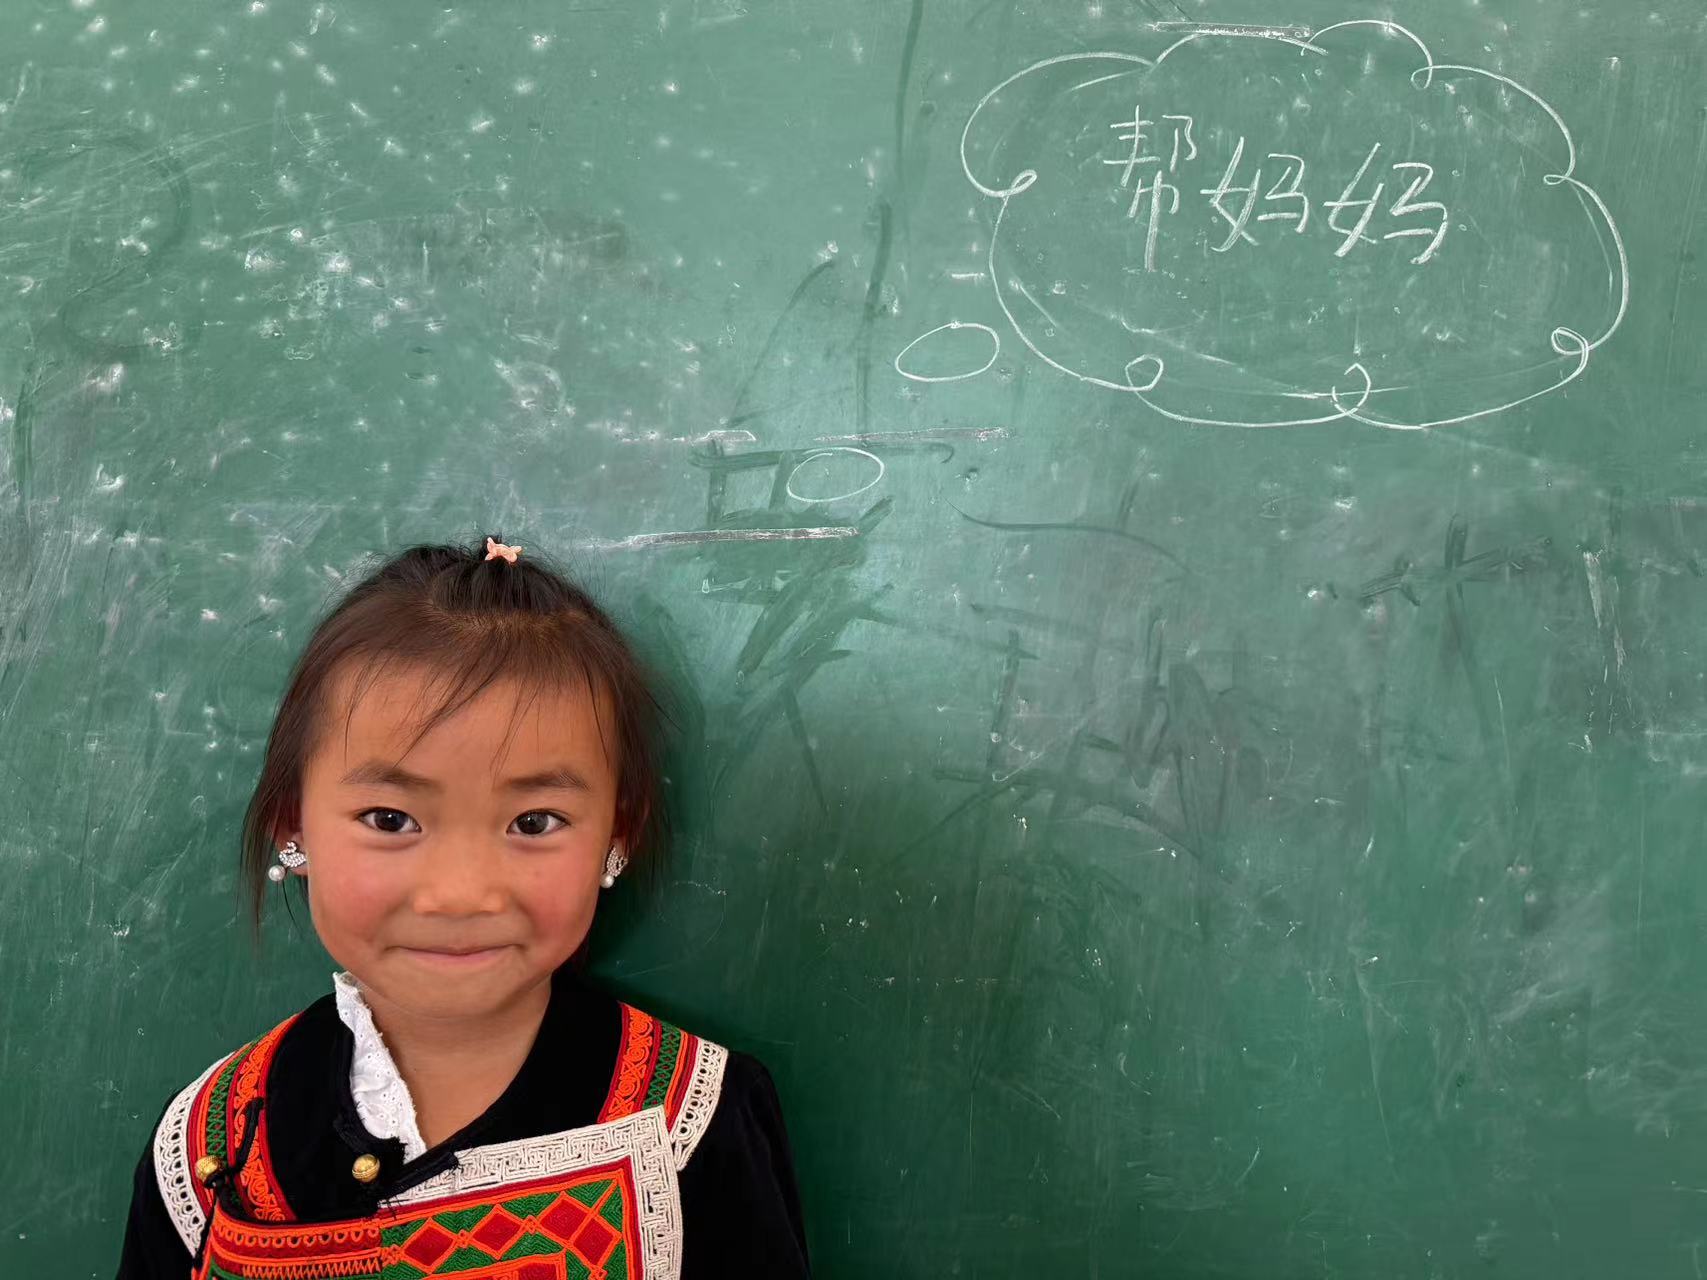 帮妈妈